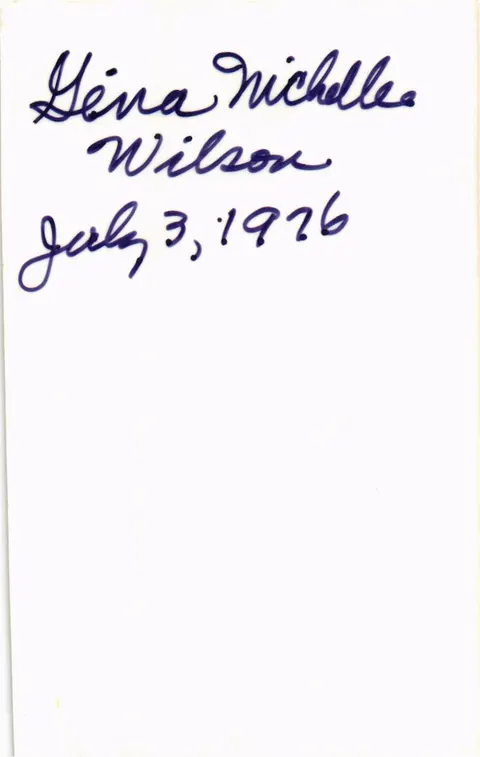 Gina Nichelle
Wilson
July 3, 1976